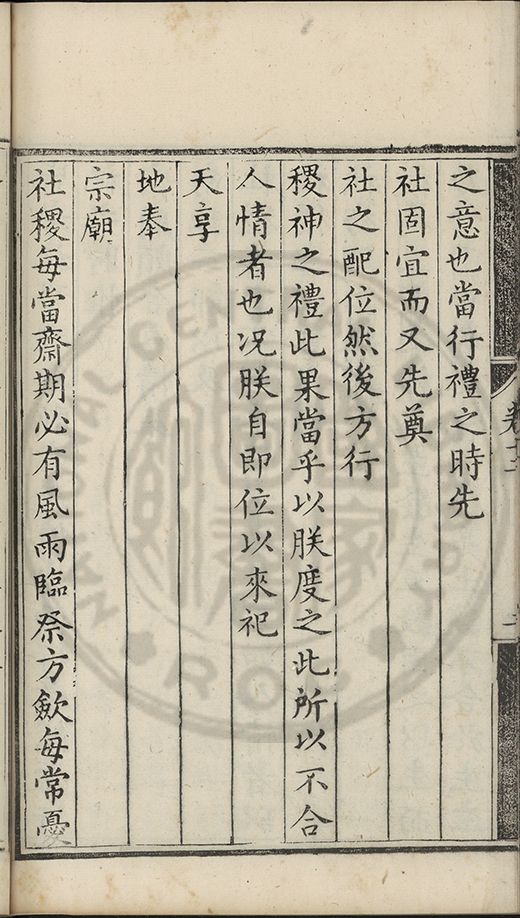 之意也當行禮之時先
社固宜而又先奠
社之配位然後方行
稷神之禮此果當乎以朕度之此所以不合
人情者也况朕自即位以來祀
天享
地奉
宗廟
社稷每當齋期必有風雨臨祭方歛每常憂
卷十二